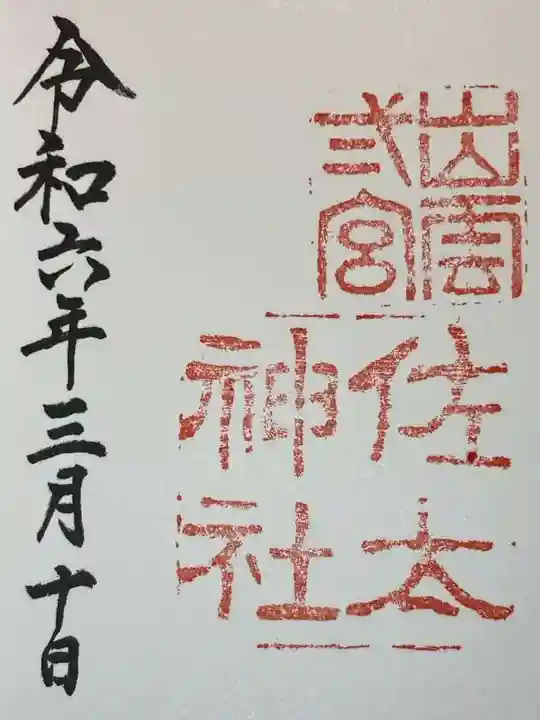 出雲
弍宮
佐太
神社
令和六年三月十日